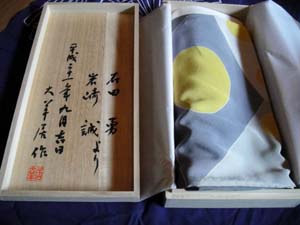 石田 勇
岩崎 誠 より
平成二十一年九月吉日
大羊居作